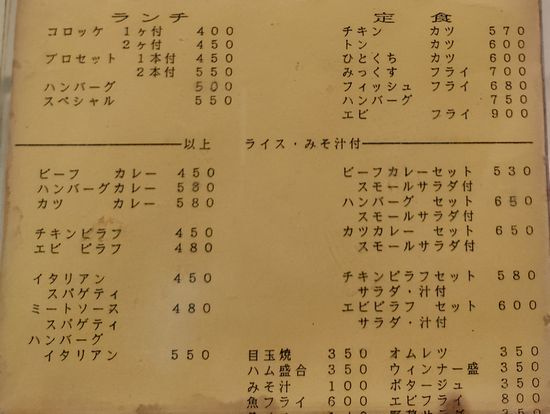 ランチ
コロッケ 1ヶ付 400
2ヶ付 450
プロセット 1本付 450
2本付 550
ハンバーグ 500
スペシャル 550
定食
チキン カツ 570
トン カツ 600
ひとくち カツ 600
みっくす フライ 700
フィッシュ フライ 680
ハンバーグ 750
エビ フライ 900
以上 ライス・みそ汁付
ビーフ カレー 450
ハンバーグカレー 580
カツ カレー 580
チキンピラフ 450
エビ ピラフ 480
イタリアン 450
スパゲティ
ミートソース 480
スパゲティ
ハンバーグ
イタリアン 550
ビーフカレーセット 530
スモールサラダ付
ハンバーグ セット 650
スモールサラダ付
カツカレー セット 650
スモールサラダ付
チキンピラフセット 580
サラダ・汁付
エビピラフ セット 600
サラダ・汁付
目玉焼 350
ハム盛合 350
みそ汁 100
魚フライ 600
オムレツ 350
ウィンナー盛 350
ポタージュ 350
エビフライ 800